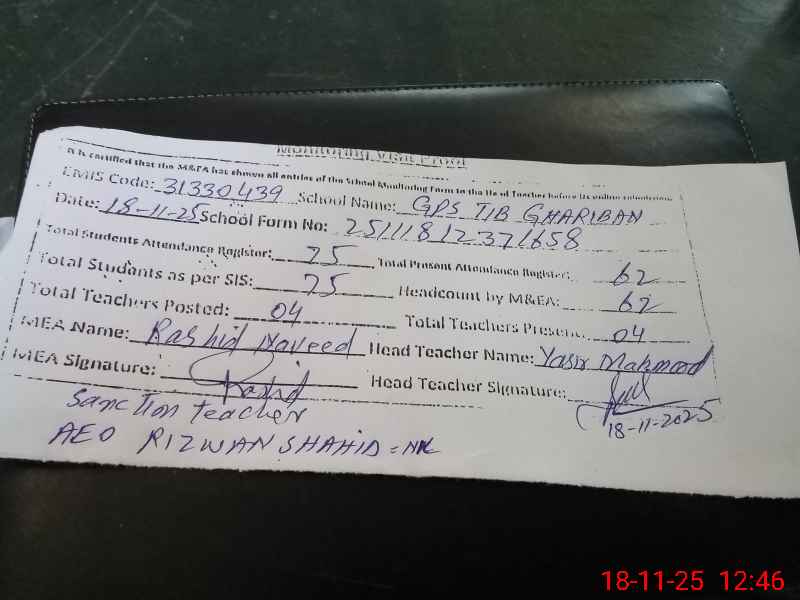 Monitoring Visit Proof
It is certified that the M&EA has shown all entries of the School Monitoring Form to the Head Teacher before its online submission.
EMIS Code: 31330439 School Name: GPS TIB GHARIBAN
Date: 18-11-25 School Form No: 25111812371658
Total Students Attendance Register: 75 Total Present Attendance Register: 62
Total Students as per SIS: 75 Headcount by M&EA: 62
Total Teachers Posted: 04 Total Teachers Present: 04
MEA Name: Rashid Naveed Head Teacher Name: Yasir Mahmood
MEA Signature: Rashid Head Teacher Signature:
18-11-2025
Sanction teacher
AEO RIZWAN SHAHID =
18-11-25 12:46